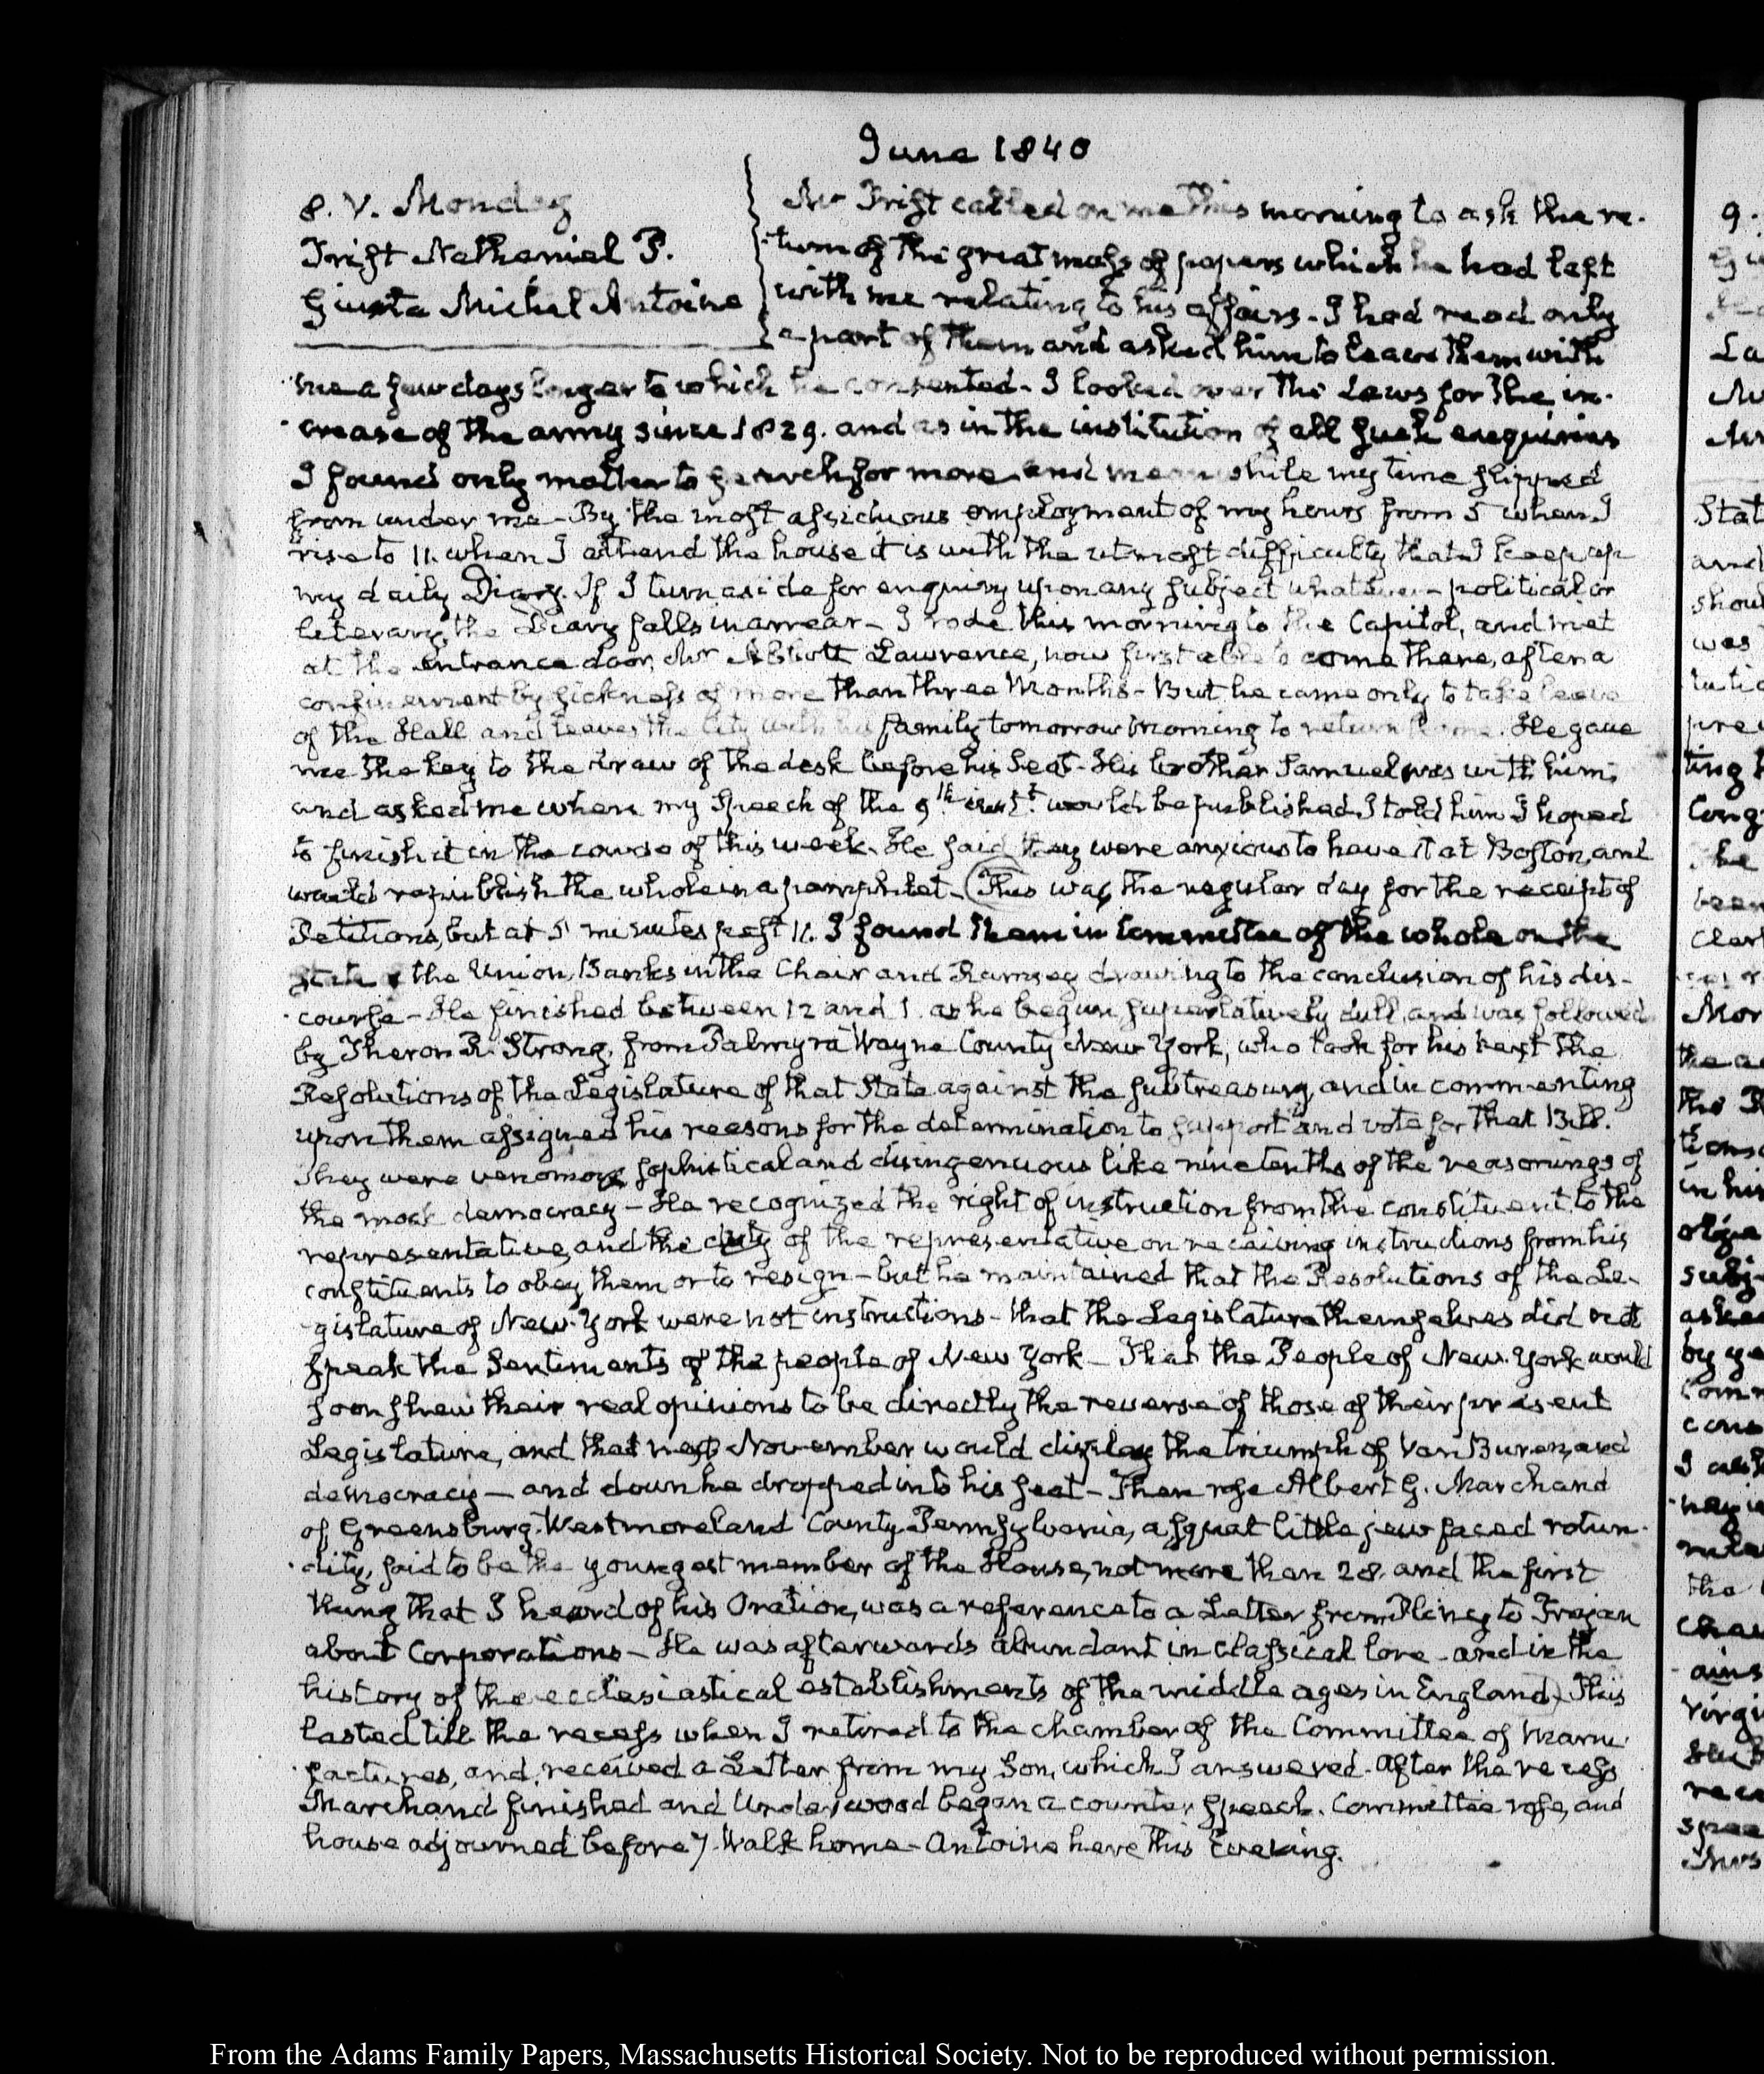 June 1840
8. V. Monday
Trist Nathaniel P.
Giusta Michel Antoine
Mr Trist called on me this morning to ask the re-
turn of the great mass of papers which he had left
with me relating to his affairs - I had read only
a part of them and asked him to leave them with
me a few days longer to which he consented - I looked over the Laws for the in-
crease of the army since 1829. and as in the institution of all such enquiries
I found only matter to search for more and mean while my time slipped
from under me - By the most assiduous employment of my hours from 5 when I
rise to 11. when I attend the house it is with the utmost difficulty that I keep up
my daily Diary. If I turn aside for enquiry upon any subject whatever - political or
literary, the Diary falls in arrear - I rode this morning to the Capitol, and met
at the entrance door, Mr Abbott Lawrence, now first able to come there, after a
confinement by sickness of more than three Months - But he came only to take leave
of the Hall and leaves the City with his family tomorrow morning to return home. He gave
me the key to the draw of the desk before his seat - His brother Samuel was with him;
and asked me when my Speech of the 9th inst. would be published. I told him I hoped
to finish it in the course of this week. He said they were anxious to have it at Boston, and
would republish the whole in a pamphlet - (This was the regular day for the receipt of
Petitions, but at 5 minutes past 11. I found them in Committee of the whole on the
state of the Union, Banks in the Chair and Ramsey drawing to the conclusion of his dis-
course - He finished between 12 and 1. as he begun superlatively dull, and was followed
by Theron R. Strong, from Palmyra Wayne County New York, who took for his text the
Resolutions of the Legislature of that State against the subtreasury, and in commenting
upon them assigned his reasons for the determination to support and vote for that Bill.
They were venomous sophistical and disingenuous like nine tenths of the reasonings of
the mock democracy - He recognized the right of instruction from the constituent to the
representative, and the duty of the representative on receiving instructions from his
constituents to obey them or to resign - but he maintained that the Resolutions of the Le-
gislature of New-York were not instructions - that the Legislature themselves did not
speak the Sentiments of the people of New York - That the People of New York would
soon shew their real opinions to be directly the reverse of those of their present
Legislature, and that next November would display the triumph of Van Buren, and
democracy - and down he dropped into his seat - Then rose Albert G. Marchand
of Greensburg. Westmoreland County Pennsylvania, a squat little jew faced rotun-
dity, said to be the youngest member of the House, not more than 28. and the first
thing that I heard of his Oration, was a reference to a Letter from Pliny to Trajan
about Corporations - He was afterwards abundant in classical lore - and in the
history of the ecclesiastical establishments of the middle ages in England) This
lasted till the recess when I retired to the chamber of the Committee of Manu-
factures, and received a Letter from my Son, which I answered. After the recess
Marchand finished and Underwood began a counter speech. Committee rose, and
house adjourned before 7. Walk home - Antoine here this Evening.
From the Adams Family Papers, Massachusetts Historical Society. Not to be reproduced without permission.